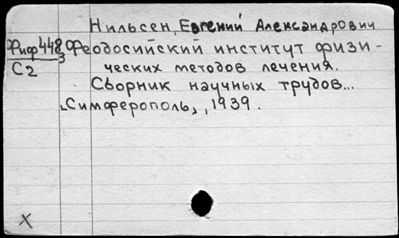 Нильсен, Евгений Александрович
Фиф448,3
С2
Феодосийский институт физи-
ческих методов лечения.
Сборник научных трудов...
Симферополь, 1939.
X